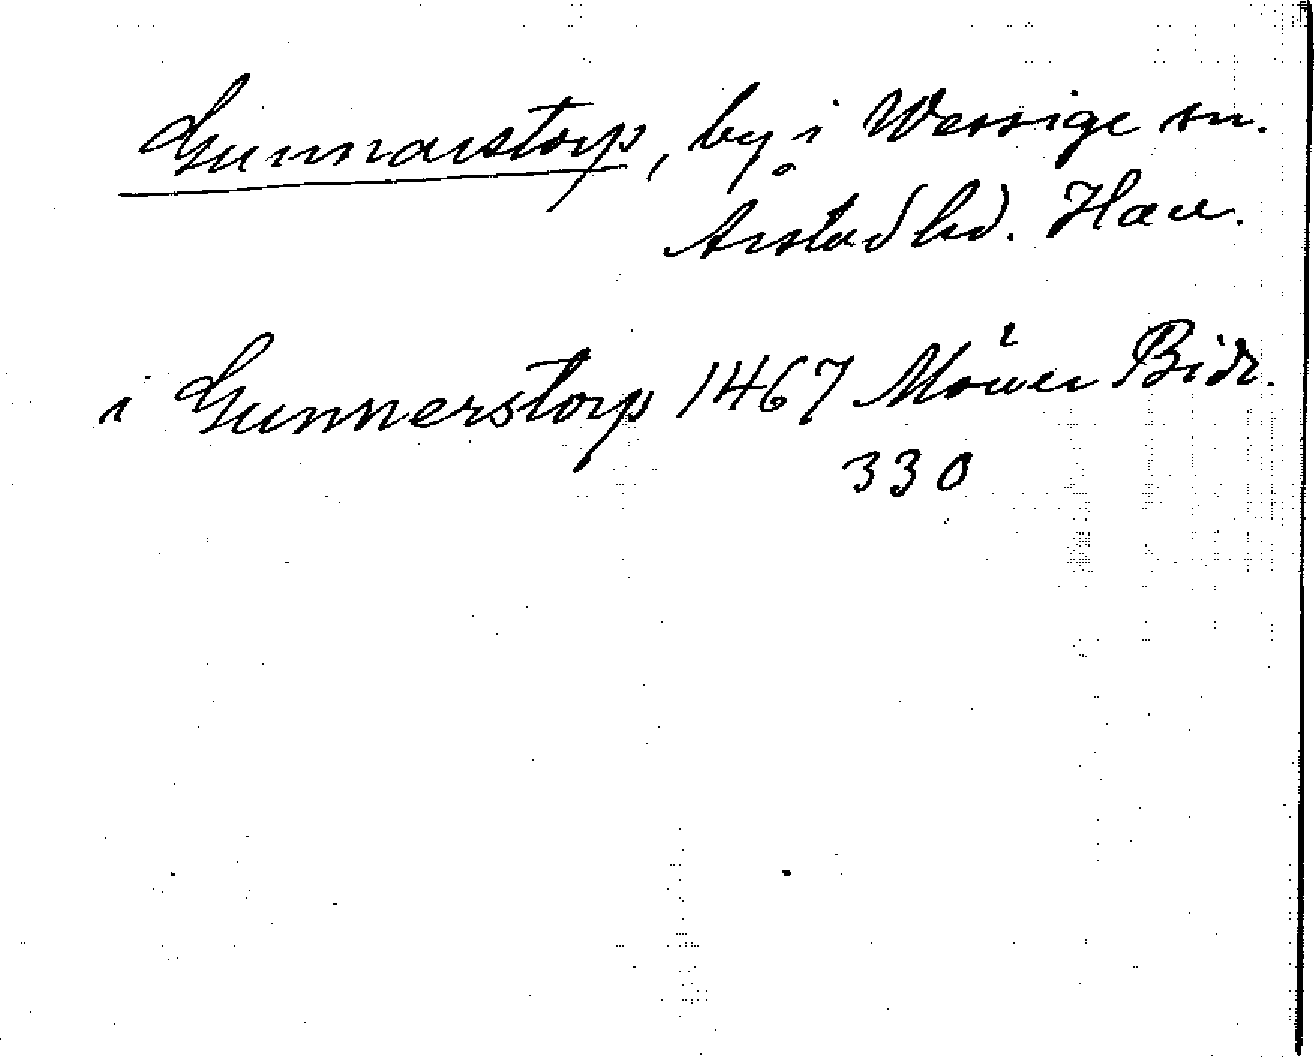 Gunnarstorp, by i Wessige sn.
Årstad hd. Hall.
i Gunnerstorp 1467 Möller Bidr.
330